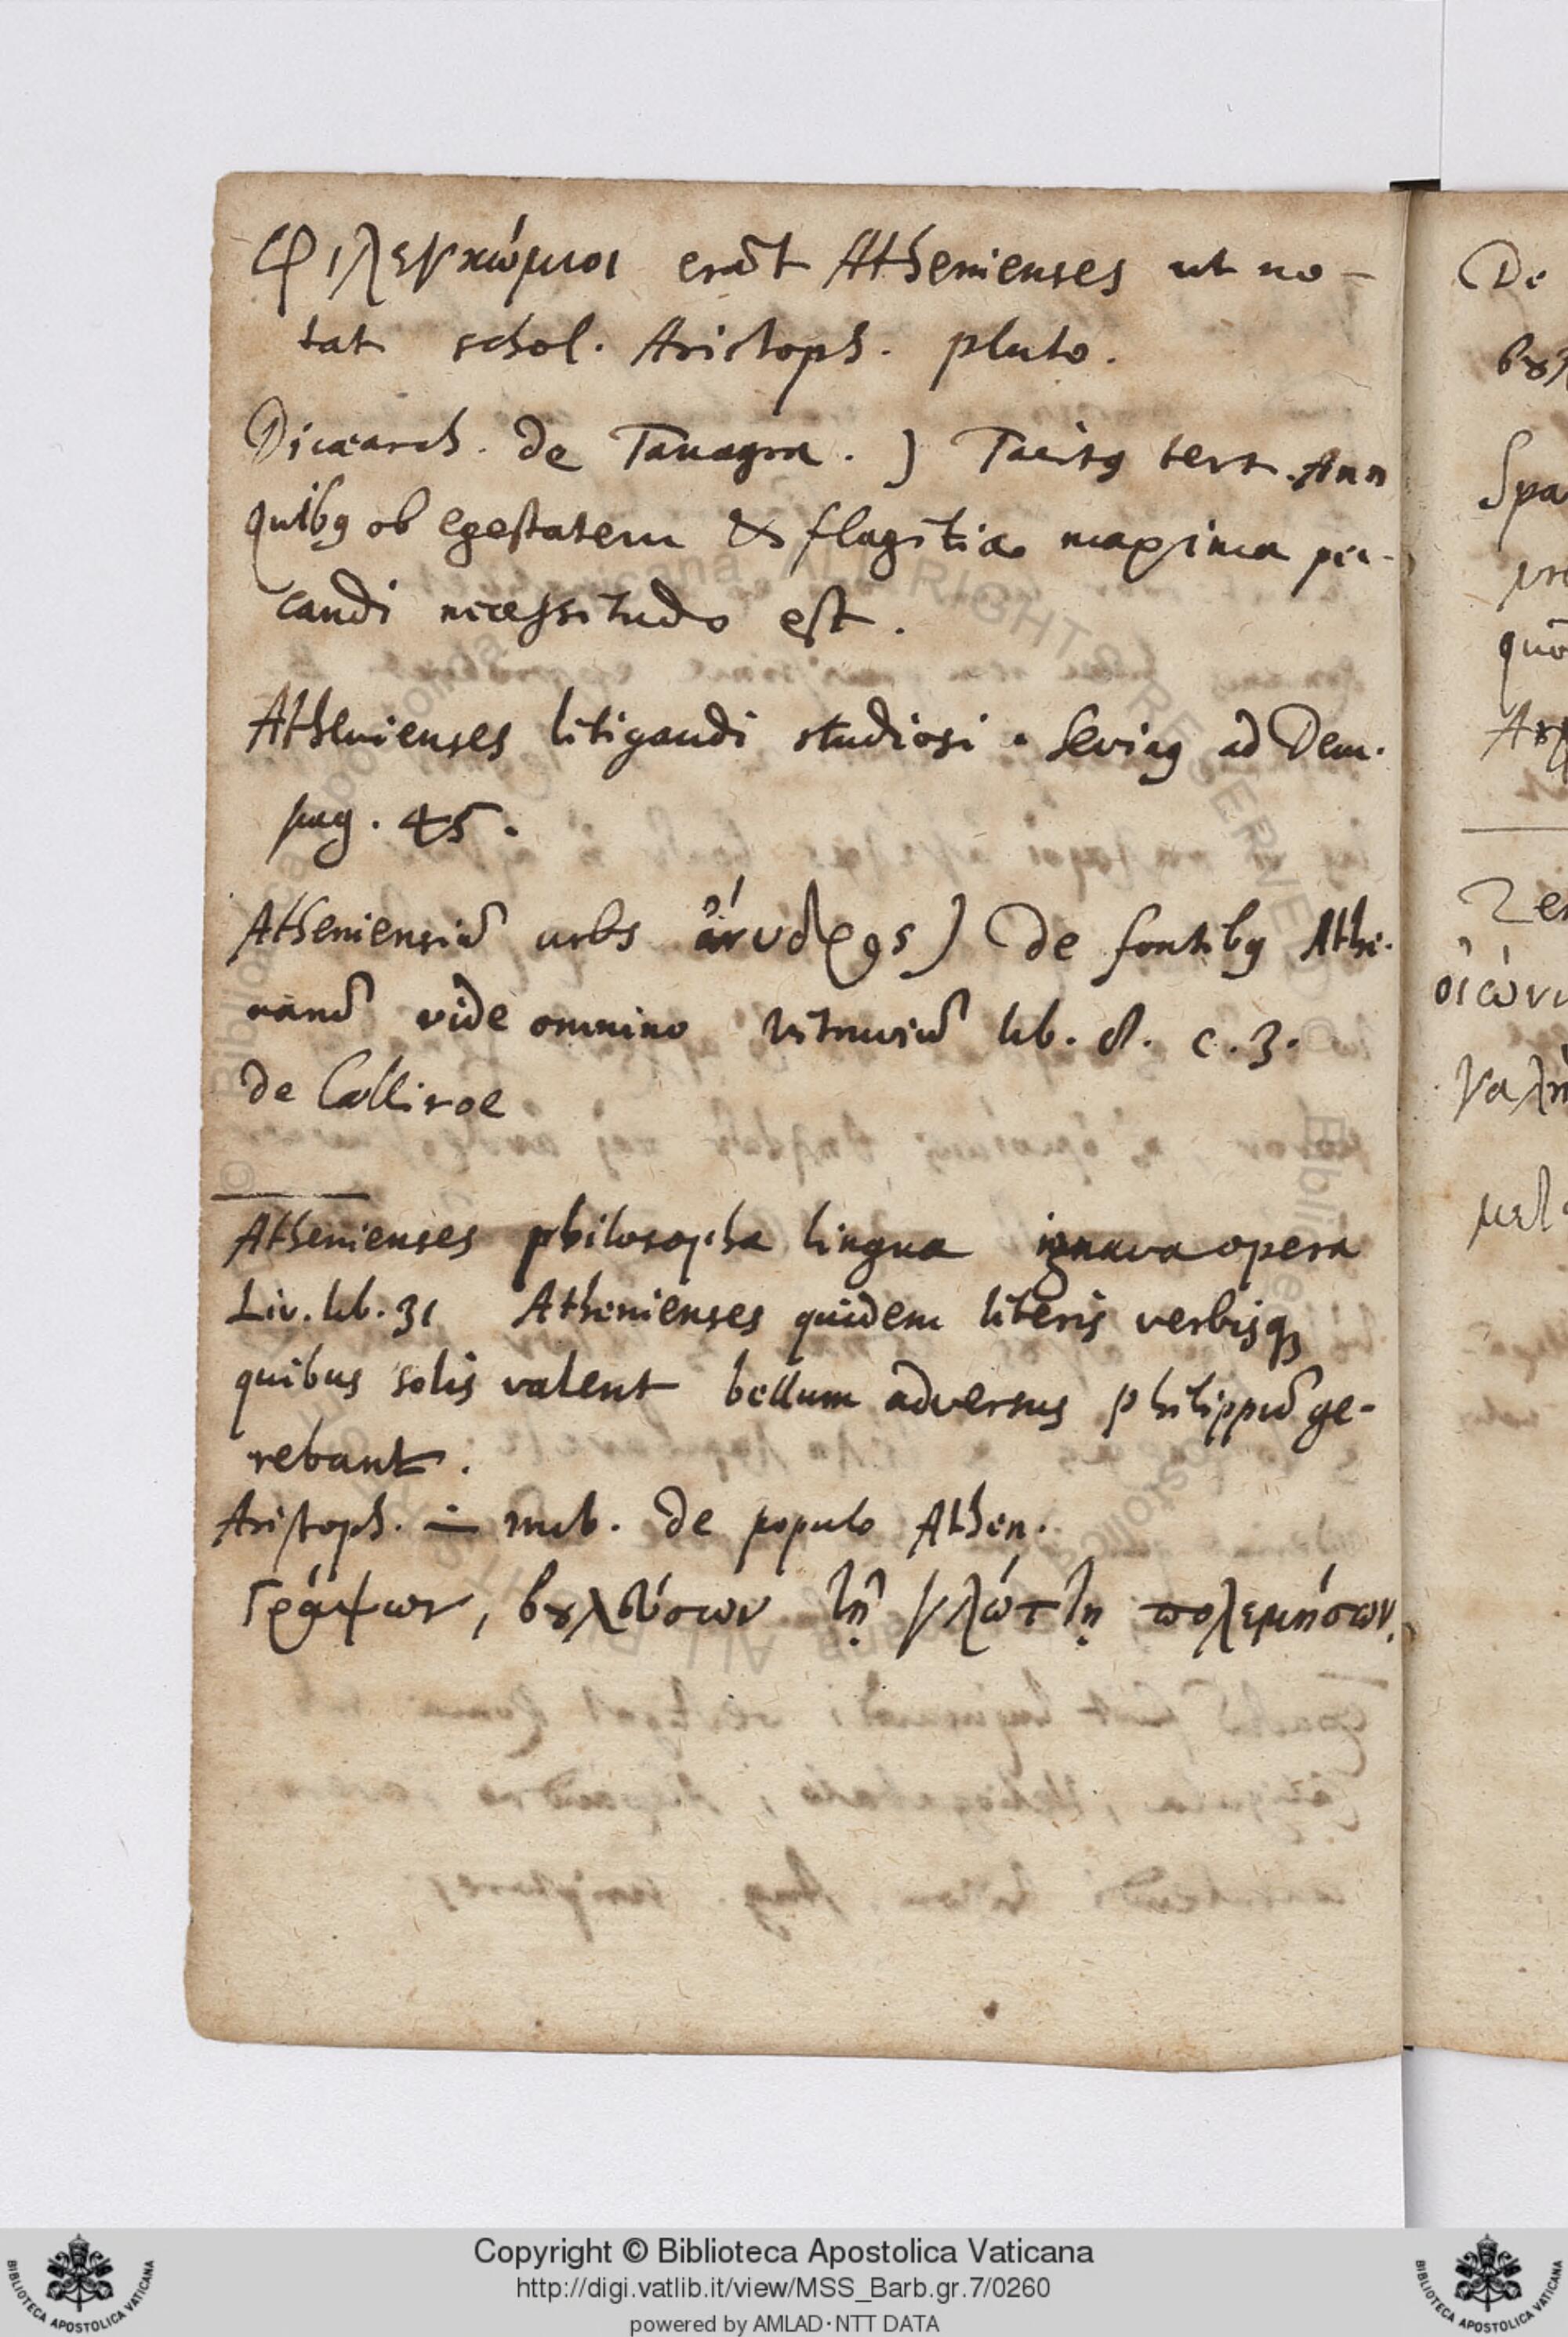 Φιλεγκώμιοι erāt Athenienses ut no-
tat schol. Aristoph. pluto.
Dicæarch. de Tanagra. ) Tacitꝰ tert. Ann
quibꝰ ob egestatem & flagitia maxima pec-
candi necessitudo est.
Athenienses litigandi studiosi. ad Dem.
pag. 45.
Atheniensiū urbs ἄνυδρος) De fontibꝰ Athe-
narū vide omnino Vitruviū lib. 8. c. 3.
de Calliroe
Athenienses philosopha lingua ignava opera
Liv. lib. 31 Athenienses quidem literis verbisqꝫ
quibus solis valent bellum adversus philippū ge-
rebant.
Aristoph. in nub. de populo Athen.
Γράψων, βȣλεύσων τῇ γλώττῃ πολεμήσων.
De
βȣλ
Spa
quō
οἰώνι
γαλὴ
μετ
© Biblioteca Apostolica Vaticana ALL RIGHTS RESERVED
Copyright © Biblioteca Apostolica Vaticana
http://digi.vatlib.it/view/MSS_Barb.gr.7/0260
powered by AMLAD·NTT DATA
BIBLIOTECA APOSTOLICA VATICANA
BIBLIOTECA APOSTOLICA VATICANA